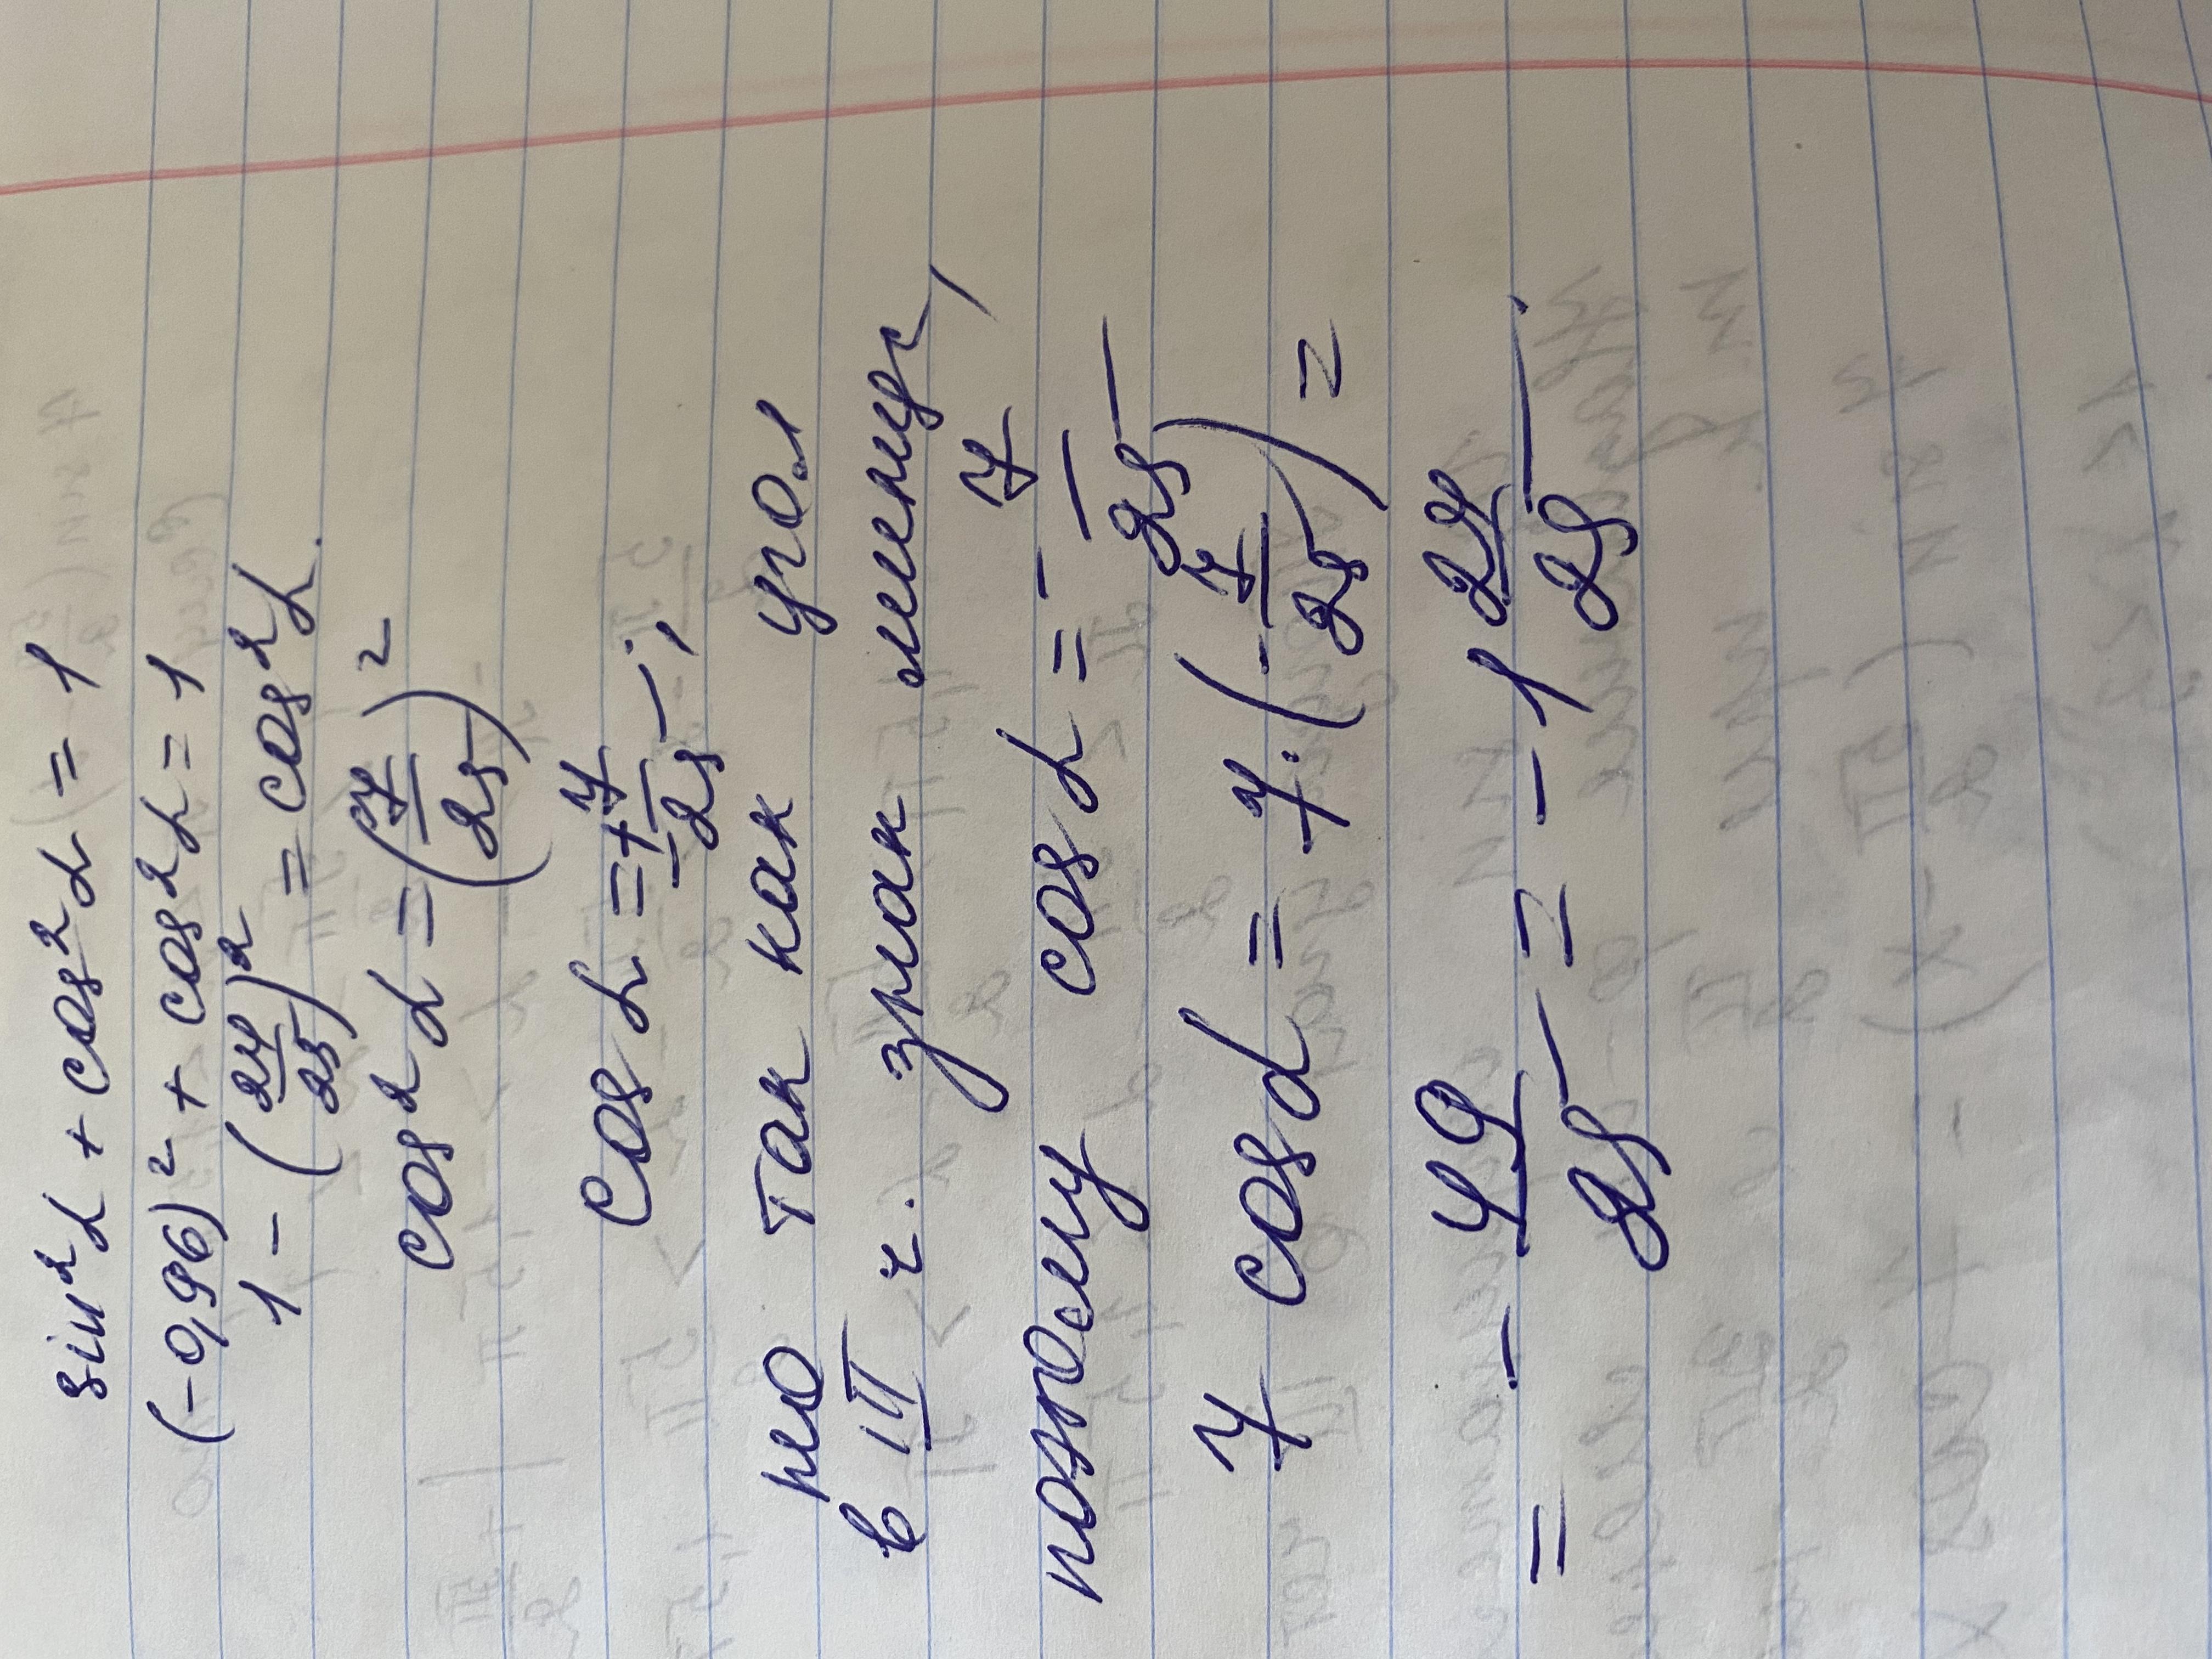 sin²α + cos²α = 1
(-0,96)² + cos²α = 1
1 - (24/25)² = cos²α.
cos²α = (7/25)²
cos α = ± 7/25;
но так как угол
в III ч. знак минус,
поэтому cos α = - 7/25
7 cos α = 7·(- 7/25) =
= - 49/25 = - 1 24/25.